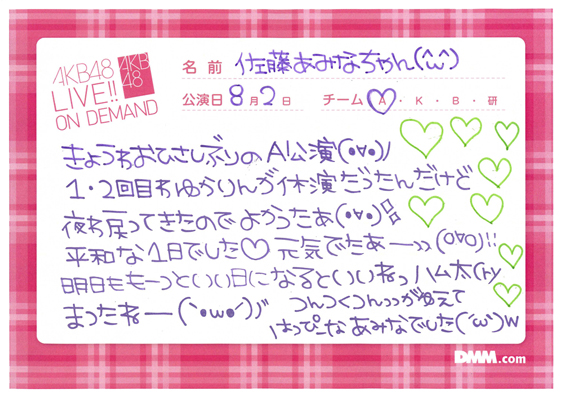 AKB48
LIVE!!
ON DEMAND
AKB
48
名前 佐藤あみなちゃん(^ω^)
公演日 8月2日 チーム A・K・B・研
きょうわおひさしぶりのA公演(o∀o)ノ
1・2回目わゆかりんが休演だったんだけど
夜わ戻ってきたのでよかったあ(o∀o)!!
平和な1日でした♡ 元気でたあー>>(o∀o)!!
明日ももーっといい日になるといいねっ ハム太
まったねー(`・ω・´)ノ"
つんつくつんっっ
はっぴーなあみなでした('ω')w
DMM.com